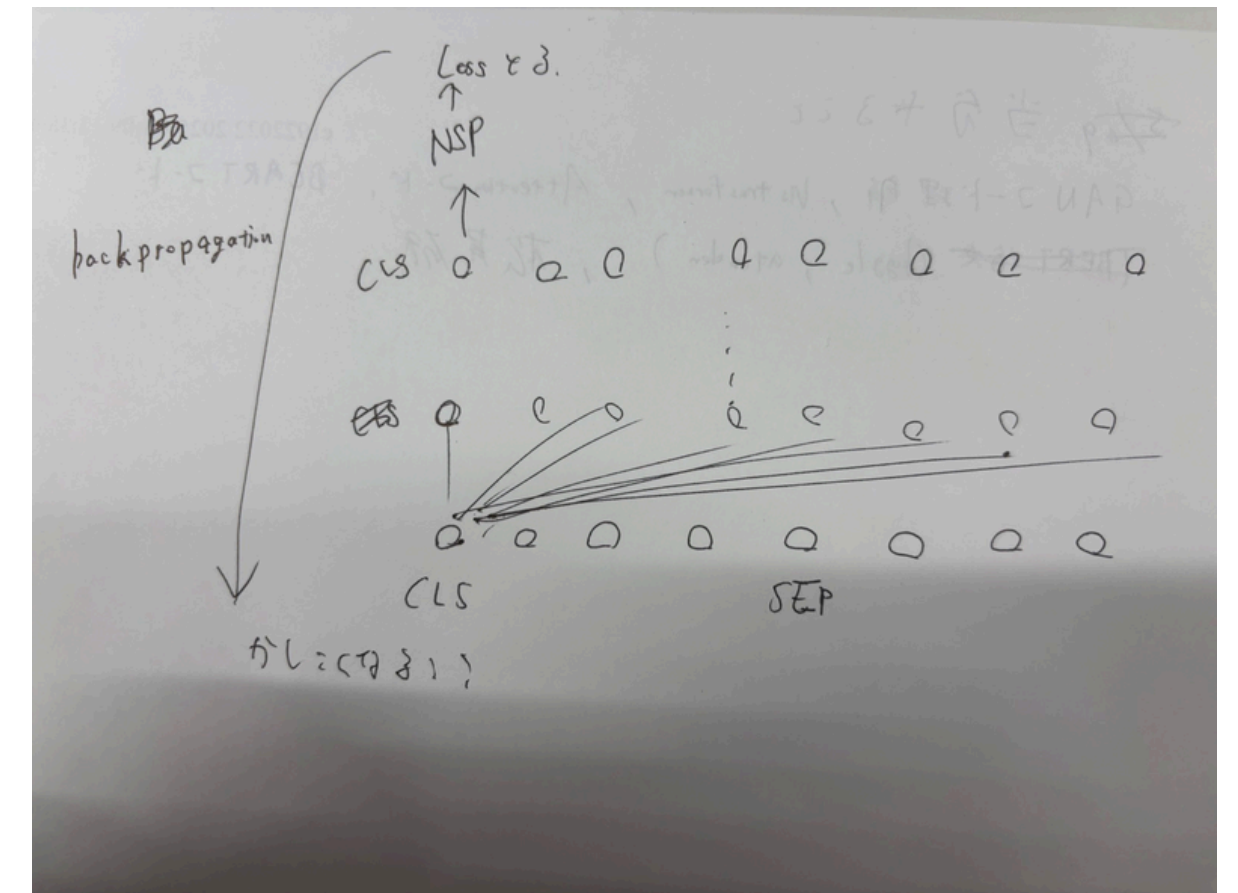 Loss とる.
NSP
backpropagation
CLS
CLS
SEP
かしこくなる!!